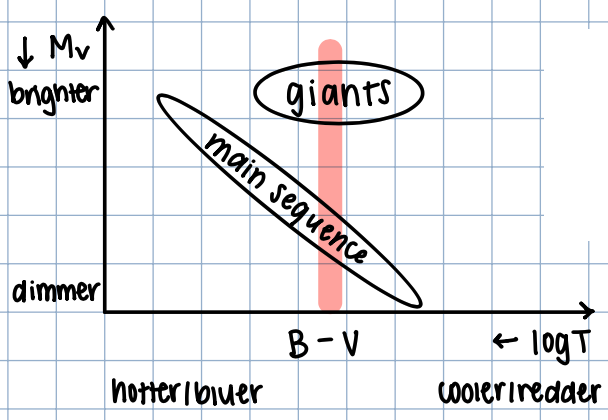 ↓ Mv
brighter
giants
main sequence
dimmer
B - V
← log T
hotter/bluer
cooler/redder